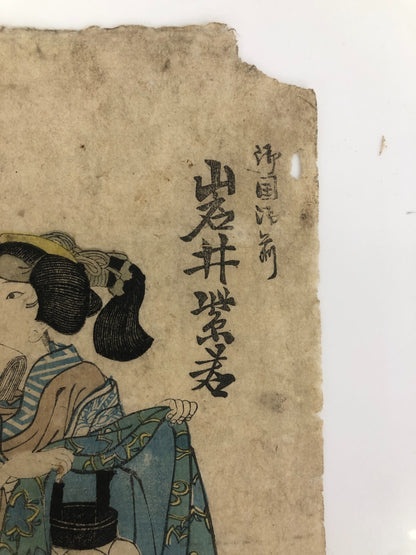 御国御前
岩井紫若